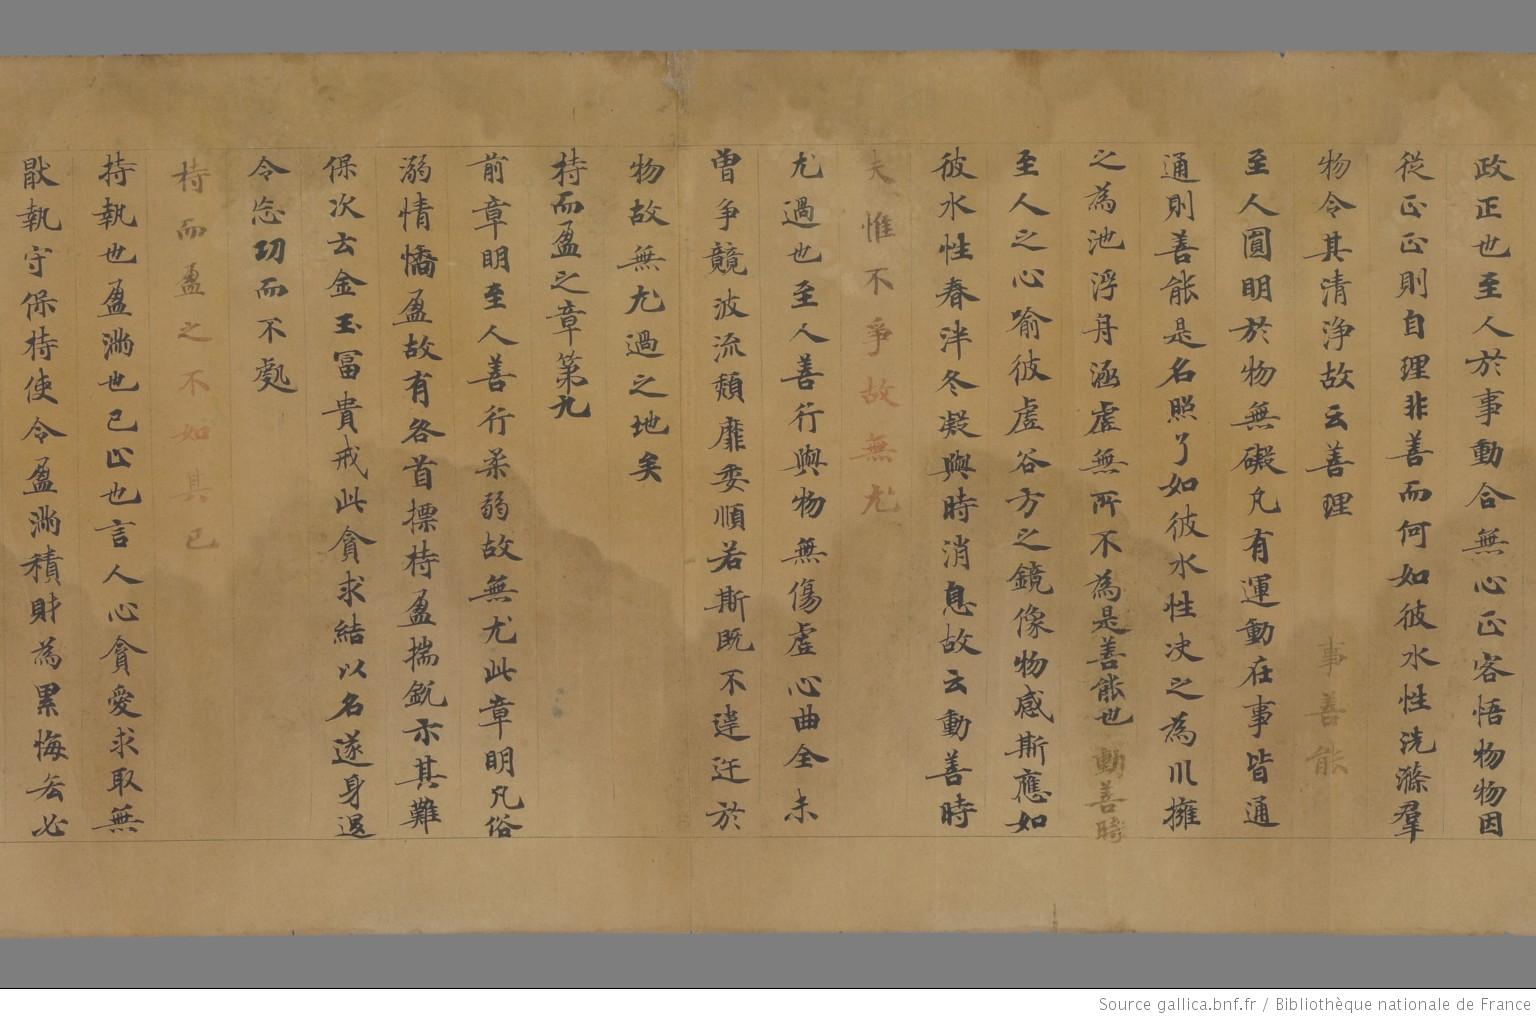 政正也至人於事動合無心正容悟物物因
從正正則自理非善而何如彼水性洗滌羣
物令其清淨故云善理　事善能
至人圓明於物無礙凡有運動在事皆通
通則善能是名照了如彼水性決之為川擁
之為池浮舟涵虛無所不為是善能也動善時
至人之心喻彼虛谷方之鏡像物感斯應如
彼水性春泮冬凝與時消息故云動善時
夫惟不爭故無尤
尤過也至人善行與物無傷虛心曲全未
曾爭競波流頹靡委順若斯既不違迕於
物故無尤過之地矣
持而盈之章第九
前章明至人善行柔弱故無尤此章明凡俗
溺情憍盈故有咎首摽持盈揣銳示其難
保次云金玉冨貴戒此貪求結以名遂身退
令忘功而不處
持而盈之不如其已
持執也盈滿也已止也言人心貪愛求取無
猒執守保持使令盈滿積財為累悔吝必
Source gallica.bnf.fr / Bibliothèque nationale de France